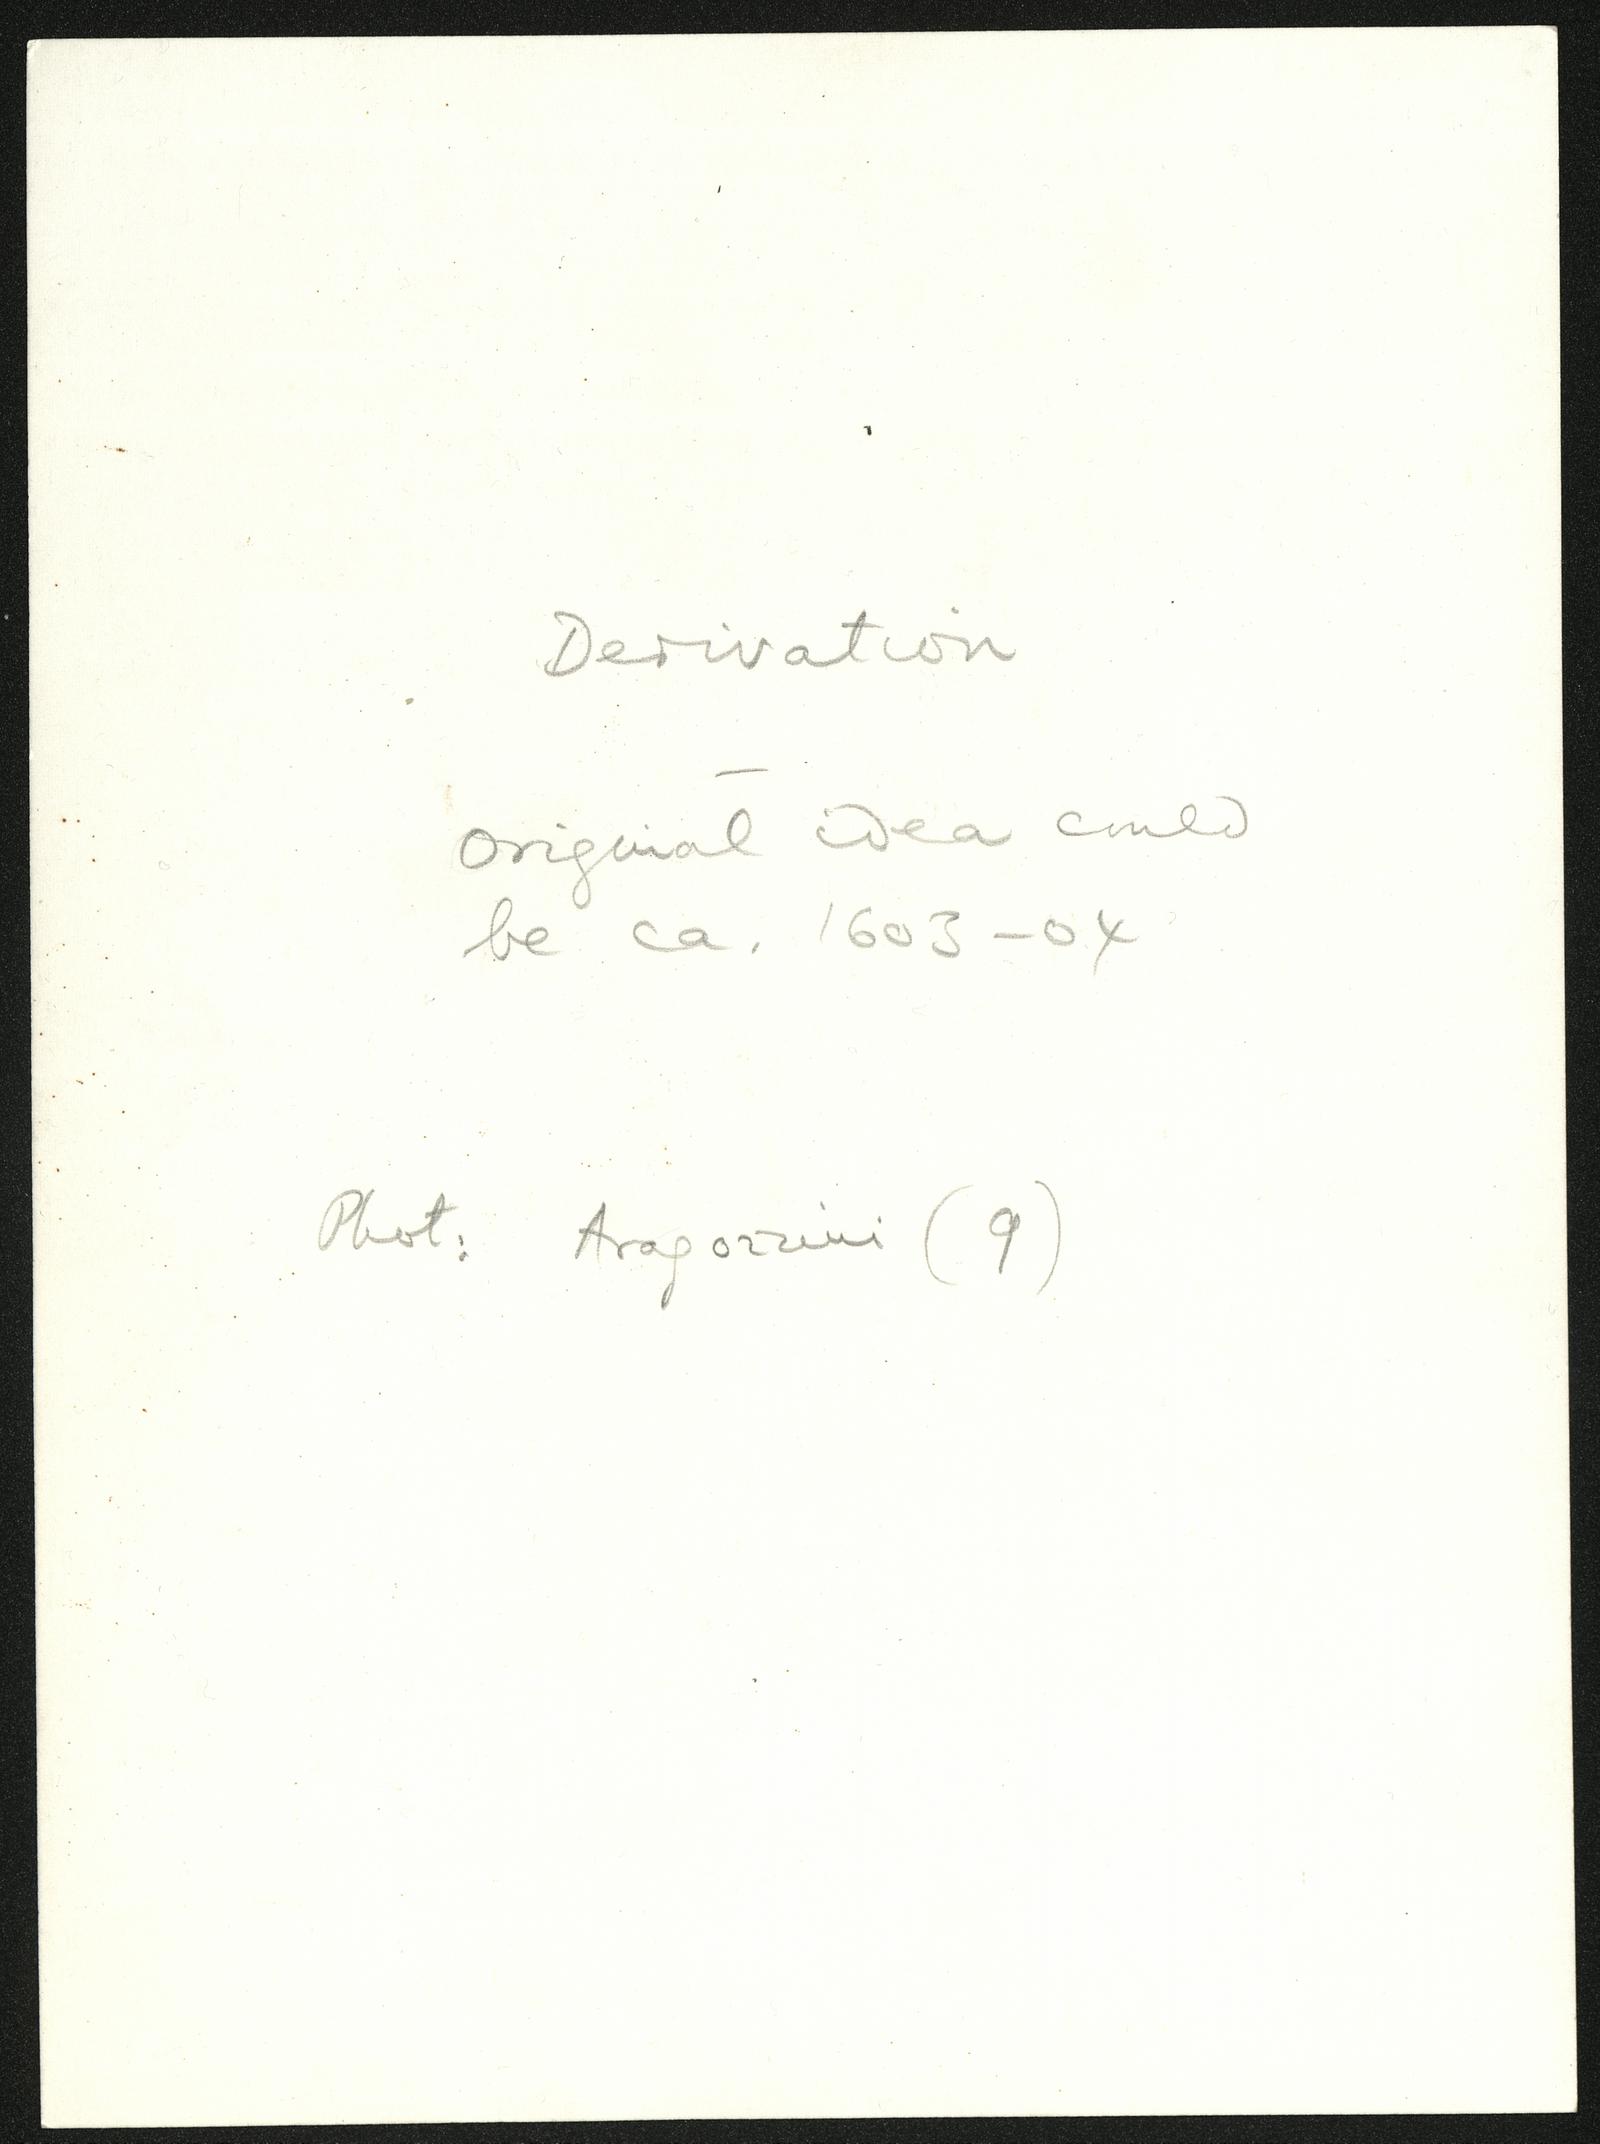 Derivation
—
Original idea could
be ca. 1603-04
Phot: Aragozzini (9)